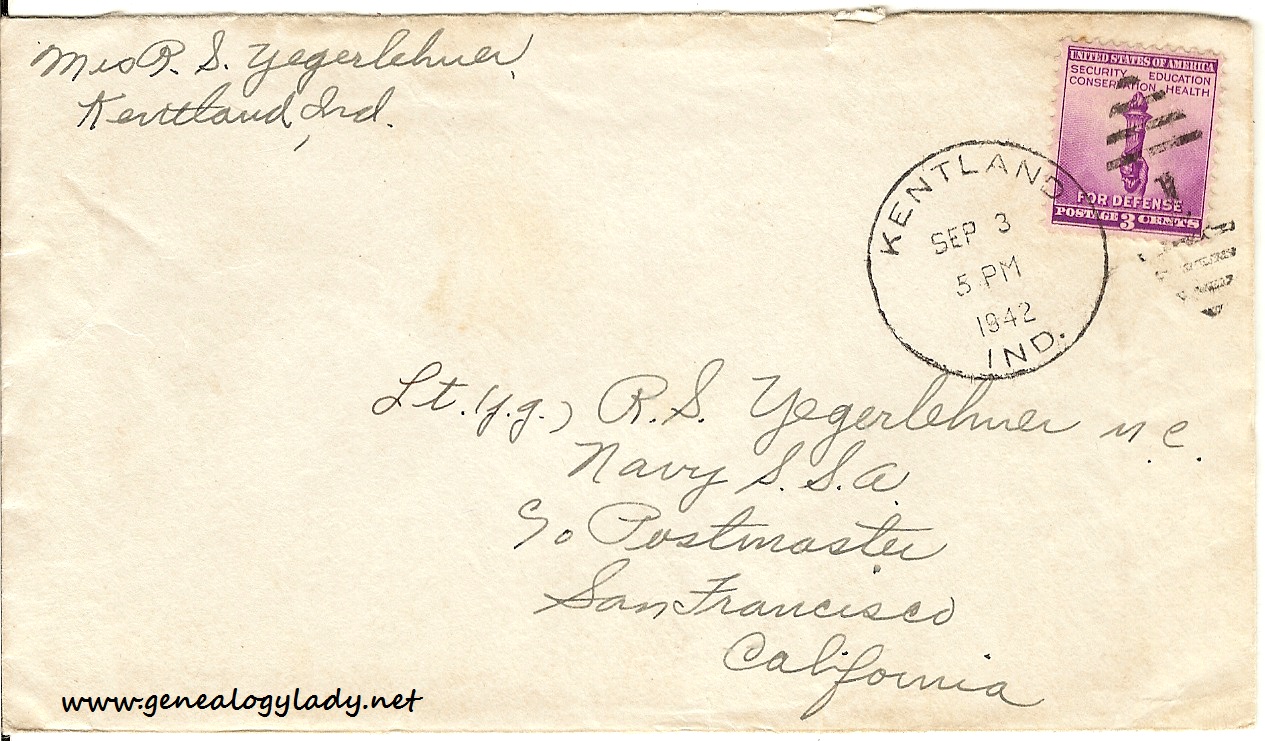 Mrs R. S. Yegerlehner,
Kentland, Ind.
UNITED STATES OF AMERICA
SECURITY EDUCATION
CONSERVATION HEALTH
FOR DEFENSE
POSTAGE 3 CENTS
KENTLAND
SEP 3
5 PM
1942
IND.
Lt. (j.g.) R. S. Yegerlehner M.C.
Navy S.S.A.
c/o Postmaster
San Francisco
California
www.genealogylady.net